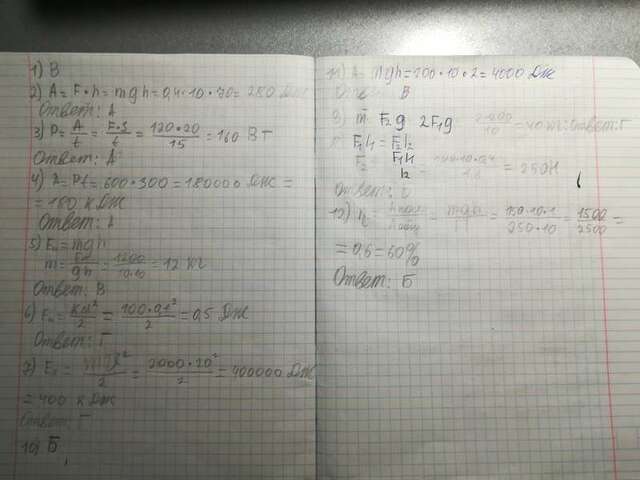 1) В
2) A = F·h = mgh = 0,4·10·70 = 280 Дж
Ответ: А
3) P = A/t = F·S/t = 120·20/15 = 160 Вт
Ответ: А
4) A = Pt = 600·300 = 180000 Дж =
= 180 кДж
Ответ: А
5) Eп = mgh
m = Eп/gh = 1200/10·10 = 12 кг
Ответ: В
6) Eп = kx²/2 = 100·0,1²/2 = 0,5 Дж
Ответ: Г
7) Eк = 2000·20²/2 = 400000 Дж
= 400 кДж
Ответ: Г
10) Б
11) A = mgh = 200·10·2 = 4000 Дж
В
m F₂g 2F₁g 2·200/10 = 40 Ответ: Г
F₁l₁ = F₂l₂
F₂ = F₁l₁/l₂ = = 250Н
Ответ:
= 150·10·1/250·10 = 1500/2500 =
= 0,6 = 60%
Ответ: Б